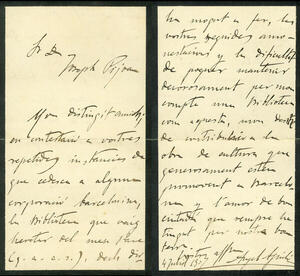 Sr D
Joseph Pijoan
Mon distingit amich:
en contestació a vostres
repetides instancies de
que cedeixi a alguna
corporació barcelonina,
la Biblioteca que vaig
heretar del meu Pare
(q. a. c. s.), dech dir
ha mogut a fer, les
vostres seguides amo-
nestacions y la dificultat
de poguer mantenir
decorosament per mon
compte una Biblioteca
com aquesta, mon desitx
de contribuir a la
obra de cultura que
generosament estem
promovent a Barcelo-
na y l'amor de bon
ciutadá que sempre he
tingut per nostra bona
terra.
vostre affm
4 Juliol